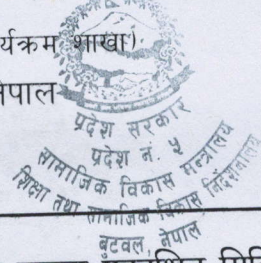 र्यक्रम शाखा)
नेपाल
प्रदेश सरकार
प्रदेश नं. ५
सामाजिक विकास मन्त्रालय
शिक्षा तथा सामाजिक विकास निर्देशनालय
बुटवल, नेपाल